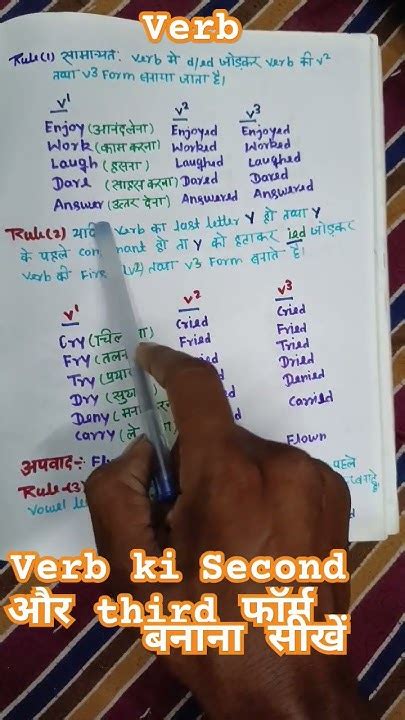 Verb
Rule(1) सामान्यतः verb में d/ed जोड़कर verb की v²
तथा v3 Form बनाया जाता है।
v¹ v² v³
Enjoy (आनंदलेना) Enjoyed Enjoyed
Work (काम करना) Worked Worked
Laugh (हसना) Laughed Laughed
Dare (साहस करना) Dared Dared
Answer (उत्तर देना) Answered Answered
Rule(2) verb का last letter Y हो तथा Y
के पहले हो तो Y को हटाकर ied जोड़कर
verb की (v2) तथा v3 Form बनाते हैं।
v¹ v² v³
Cry Cried Cried
Fry Fried Fried
Try Tried
Dry Dried
Deny Denied
Carry Carried
Flown
अपवाद :-
Rule-(3) पहले
Vowel
Verb ki Second
और third फॉर्म
बनाना सीखें